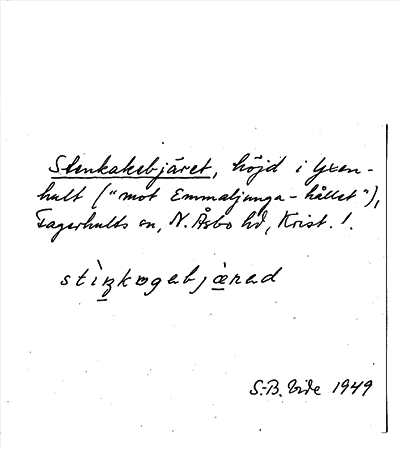 Stenkakebjäret, höjd i Yxen-
hult ("mot Emmaljunga-hållet"),
Fagerhults sn, N. Åsbo hd, Krist. l.
stìŋkɷgabjæ̀rad
S.-B. Vide 1949